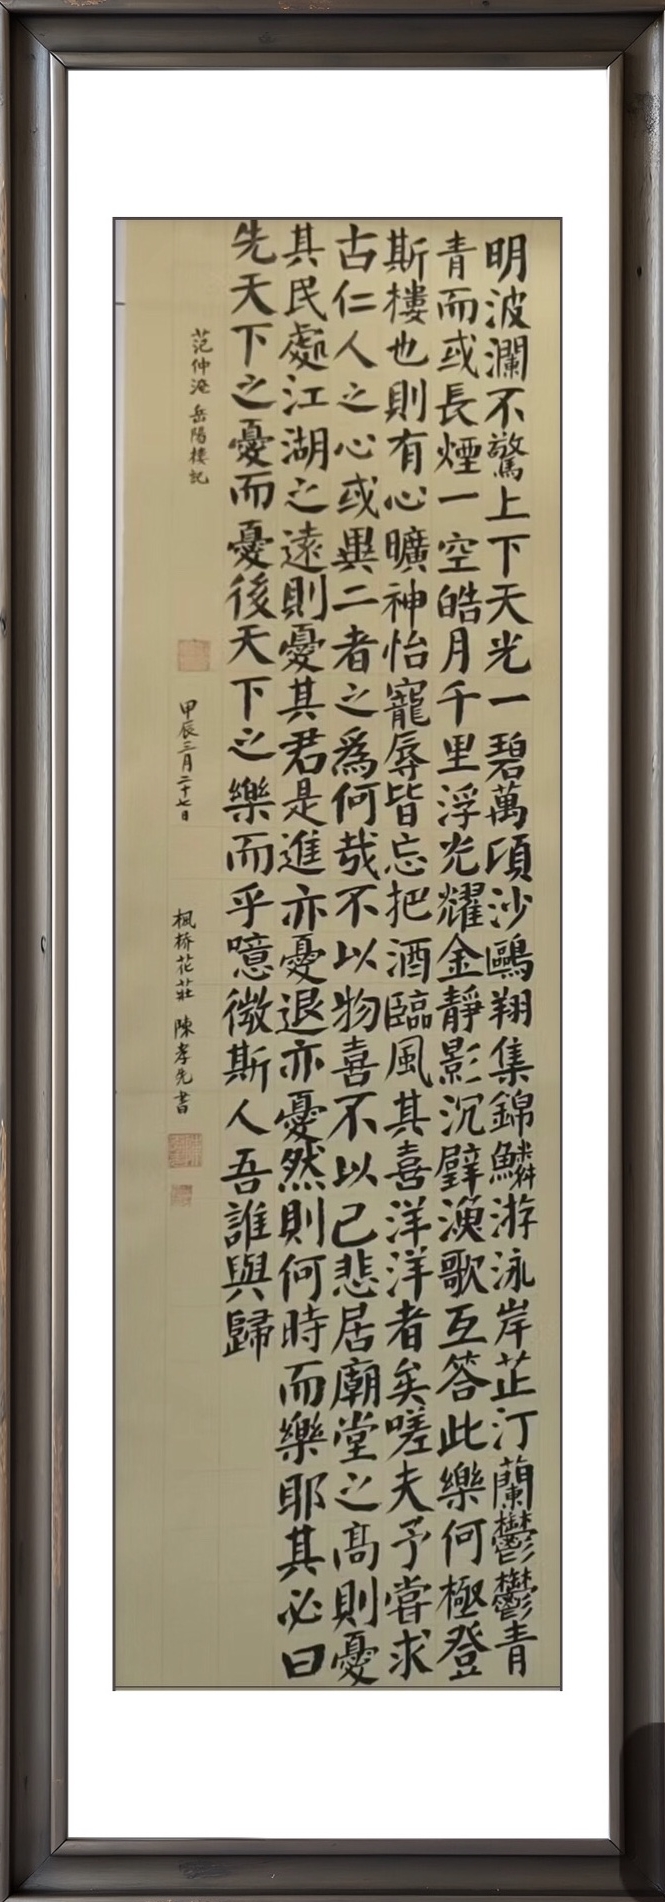 明波瀾不驚上下天光一碧萬頃沙鷗翔集錦鱗游泳岸芷汀蘭鬱鬱青
青而或長煙一空皓月千里浮光耀金靜影沉璧漁歌互答此樂何極登
斯樓也則有心曠神怡寵辱皆忘把酒臨風其喜洋洋者矣嗟夫予嘗求
古仁人之心或異二者之爲何哉不以物喜不以己悲居廟堂之高則憂
其民處江湖之遠則憂其君是進亦憂退亦憂然則何時而樂耶其必曰
先天下之憂而憂後天下之樂而乎噫微斯人吾誰與歸
范仲淹 岳陽樓記
甲辰三月二十七日 楓桥花莊 陳孝先書